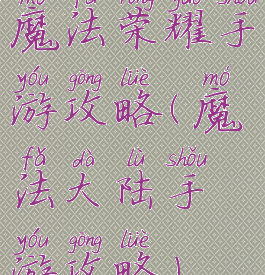 mó fǎ róng yào shǒu
魔法荣耀手
yóu gōng lüè mó
游攻略(魔
fǎ dà lù shǒu
法大陆手
yóu gōng lüè
游攻略)